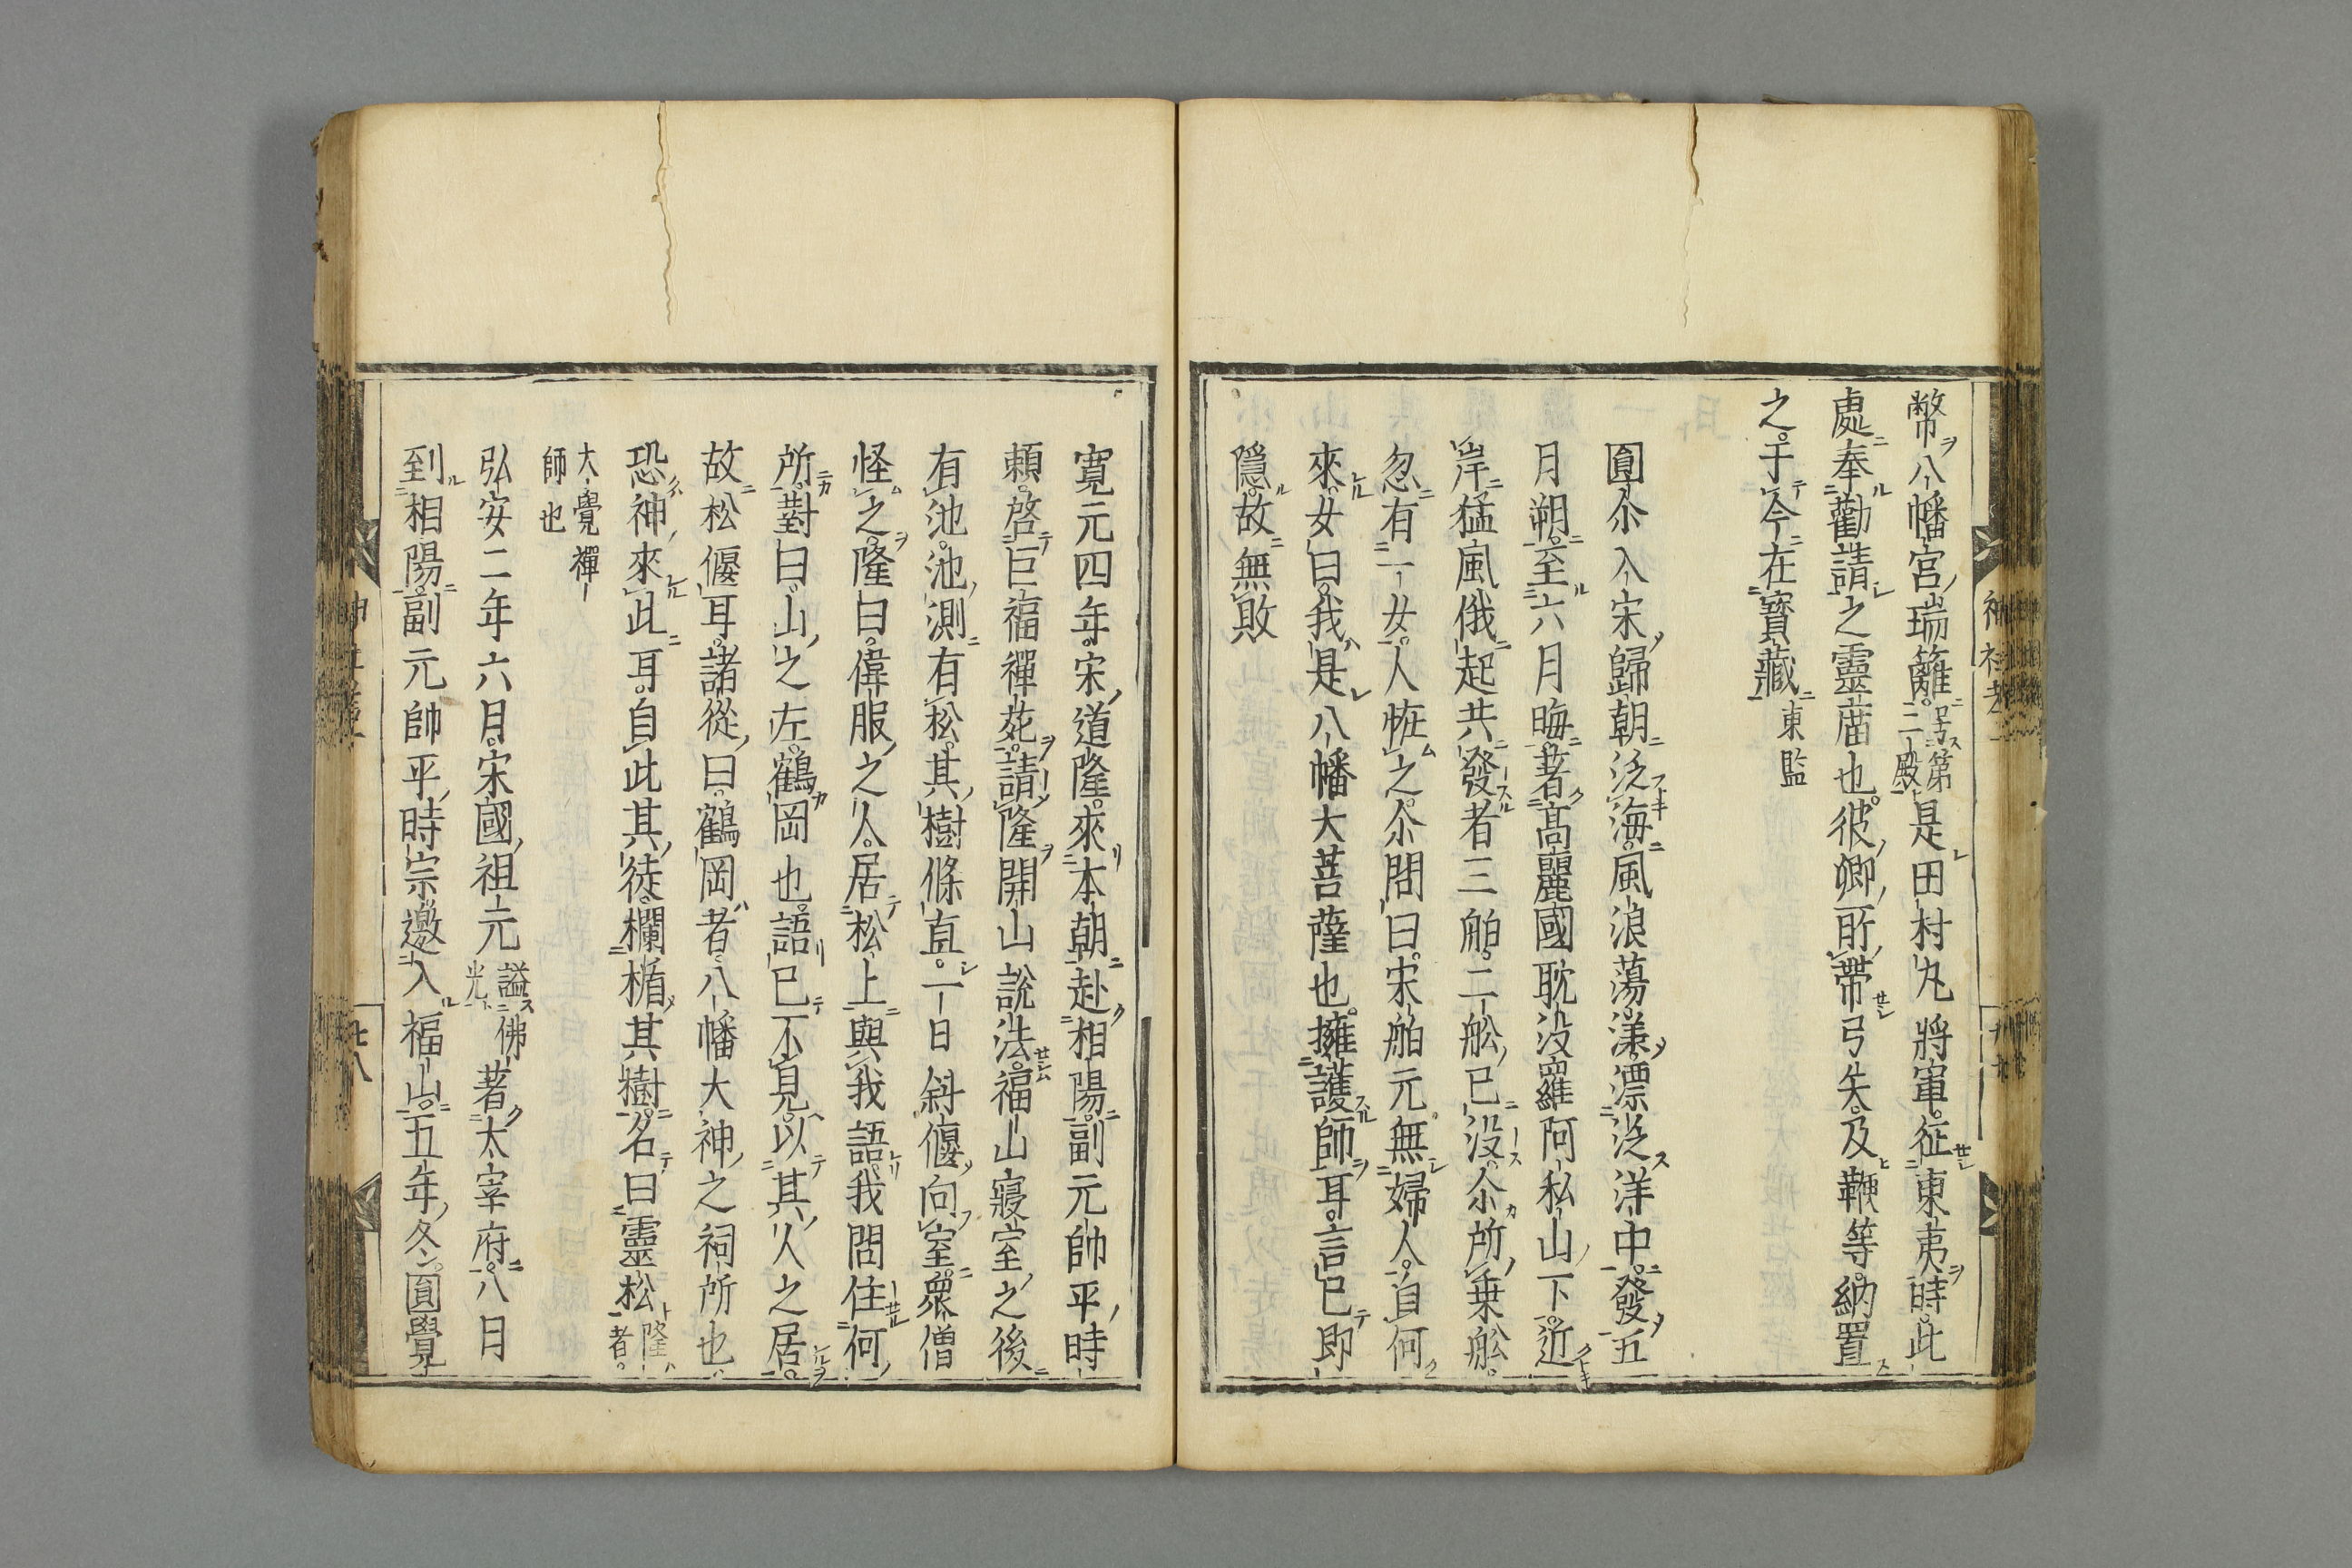 幣八幡宮瑞籬号第二殿是田村丸將軍征東夷時此
處奉勸請之靈庿也彼卿所帶弓矢及鞭等納置
之于今在寳藏東監
圓尒入宋歸朝泛海風浪蕩漾漂泛洋中發五
月朔至六月晦著髙麗國耽没羅阿私山下近
岸猛風俄起共發者三舶二舩已没尒所乗舩
忽有一女人恠之尒問曰宋舶元無婦人自何
來女曰我是八幡大菩薩也擁護師耳言已即
隱故無敗
寛元四年宋道隆來本朝赴相陽副元帥平時
頼啓巨福禪苑請隆開山說法福山寢室之後
有池池測有松其樹條直一日斜偃向室衆僧
怪之隆曰偉服之人居松上與我語我問住何
所對曰山之左鶴岡也語已不見以其人之居
故松偃耳諸從曰鶴岡者八幡大神之祠所也
恐神來此耳自此其徒欄楯其樹名曰靈松隆者
大覺禪師也
弘安二年六月宋國祖元謚佛光著太宰府八月
到相陽副元帥平時宗邀入福山五年冬圓覺